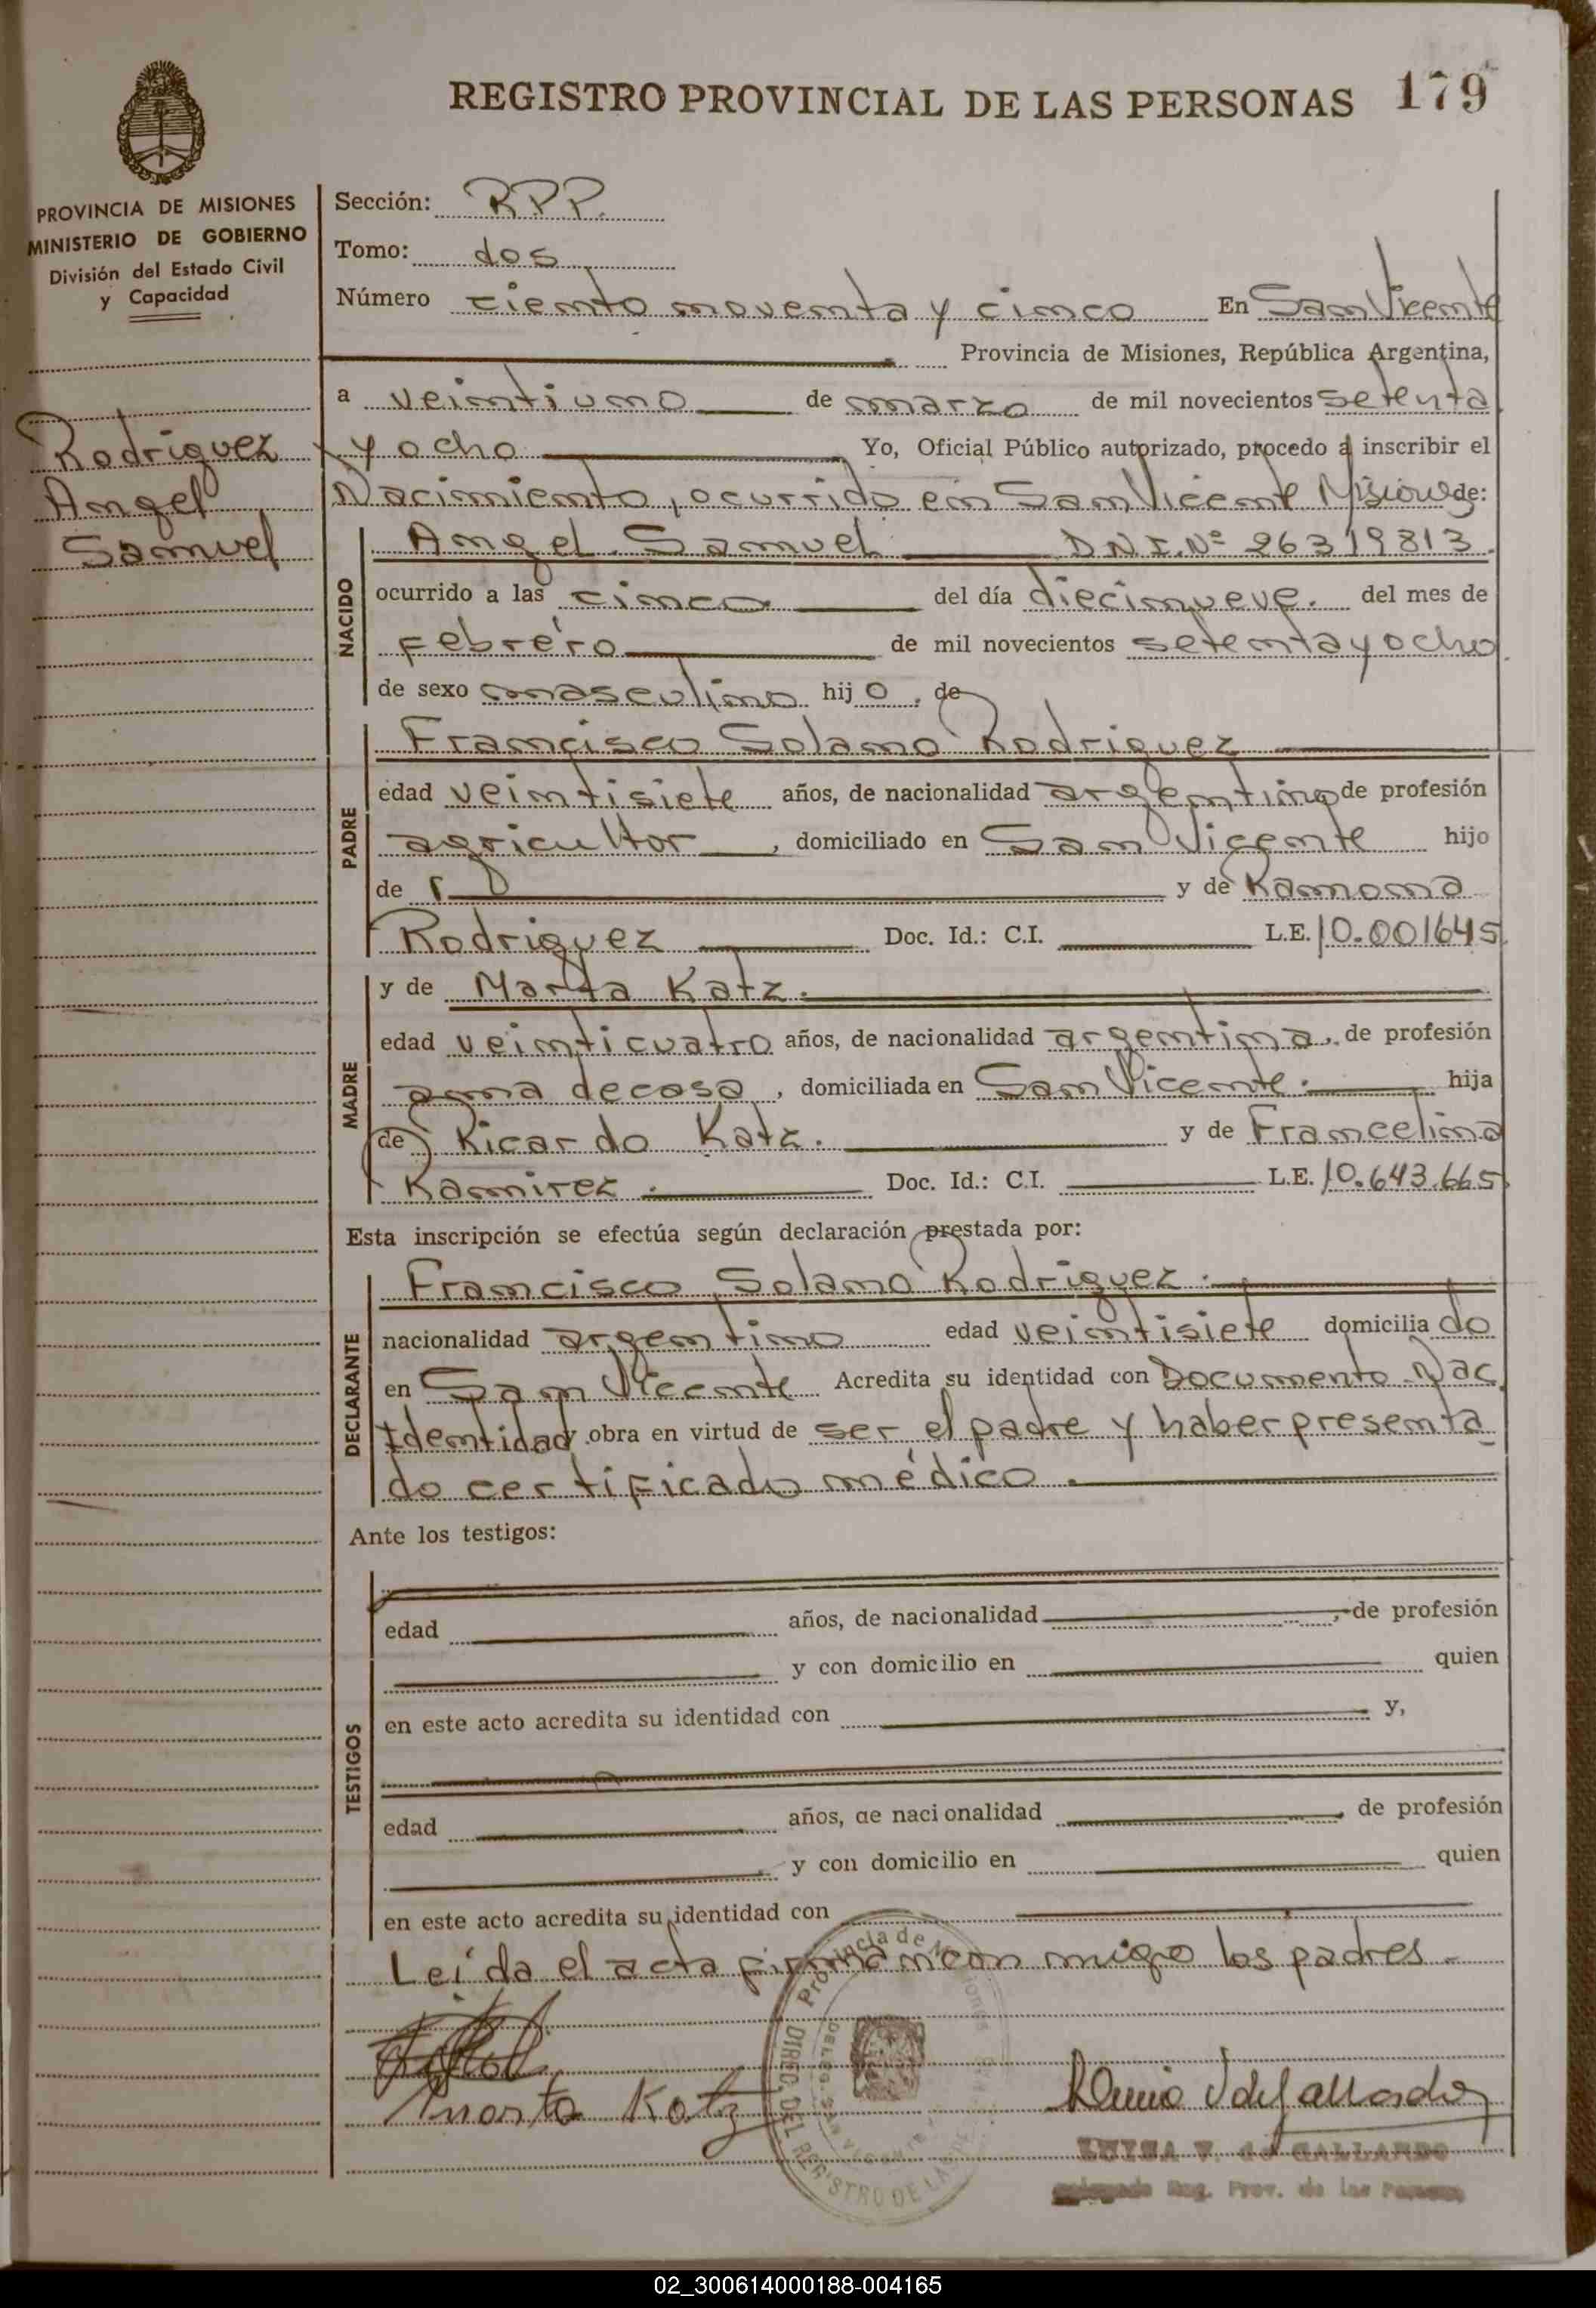 REGISTRO PROVINCIAL DE LAS PERSONAS 179
PROVINCIA DE MISIONES
MINISTERIO DE GOBIERNO
División del Estado Civil
y Capacidad
Rodriguez
Angel
Samuel
Sección: R.P.P.
Tomo: dos
Número ciento noventa y cinco En San Vicente
Provincia de Misiones, República Argentina,
a veintiuno de marzo de mil novecientos setenta
y ocho Yo, Oficial Público autorizado, procedo a inscribir el
Nacimiento, ocurrido en San Vicente Misiones de:
NACIDO
Angel Samuel D.N.I. Nº 26319813
ocurrido a las cinco del día diecinueve. del mes de
Febrero de mil novecientos setenta y ocho
de sexo masculino hijo, de
PADRE
Francisco Solano Rodriguez
edad veintisiete años, de nacionalidad argentino de profesión
agricultor, domiciliado en San Vicente hijo
de y de Ramona
Rodriguez Doc. Id.: C.I. L.E. 10.001645
MADRE
y de Marta Katz.
edad veinticuatro años, de nacionalidad argentina, de profesión
ama de casa, domiciliada en San Vicente. hija
de Ricardo Katz. y de Francelina
Ramirez. Doc. Id.: C.I. L.E. 10.643.665
Esta inscripción se efectúa según declaración prestada por:
DECLARANTE
Francisco Solano Rodriguez.
nacionalidad argentino edad veintisiete domiciliado
en San Vicente Acredita su identidad con Documento Nac.
Identidad y obra en virtud de ser el padre y haber presenta
do certificado médico.
Ante los testigos:
TESTIGOS
edad años, de nacionalidad , de profesión
y con domicilio en quien
en este acto acredita su identidad con y,
edad años, de nacionalidad , de profesión
y con domicilio en quien
en este acto acredita su identidad con
Leída el acta firman con migo los padres.
Marta Katz
Provincia de Misiones
DIREC. DEL REGISTRO DE LAS
LUISA V. de GALLARDO
Delegada Reg. Prov. de las Personas
02_300614000188-004165